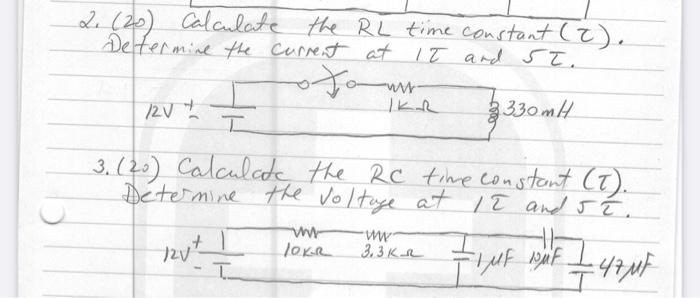 2. (20) Calculate the RL time constant (τ).
Determine the current at 1τ and 5τ.
12V + -
1KΩ
330mH
3. (20) Calculate the RC time constant (τ).
Determine the Voltage at 1τ and 5τ.
12V + -
10KΩ
3.3KΩ
1μF
10μF
47μF